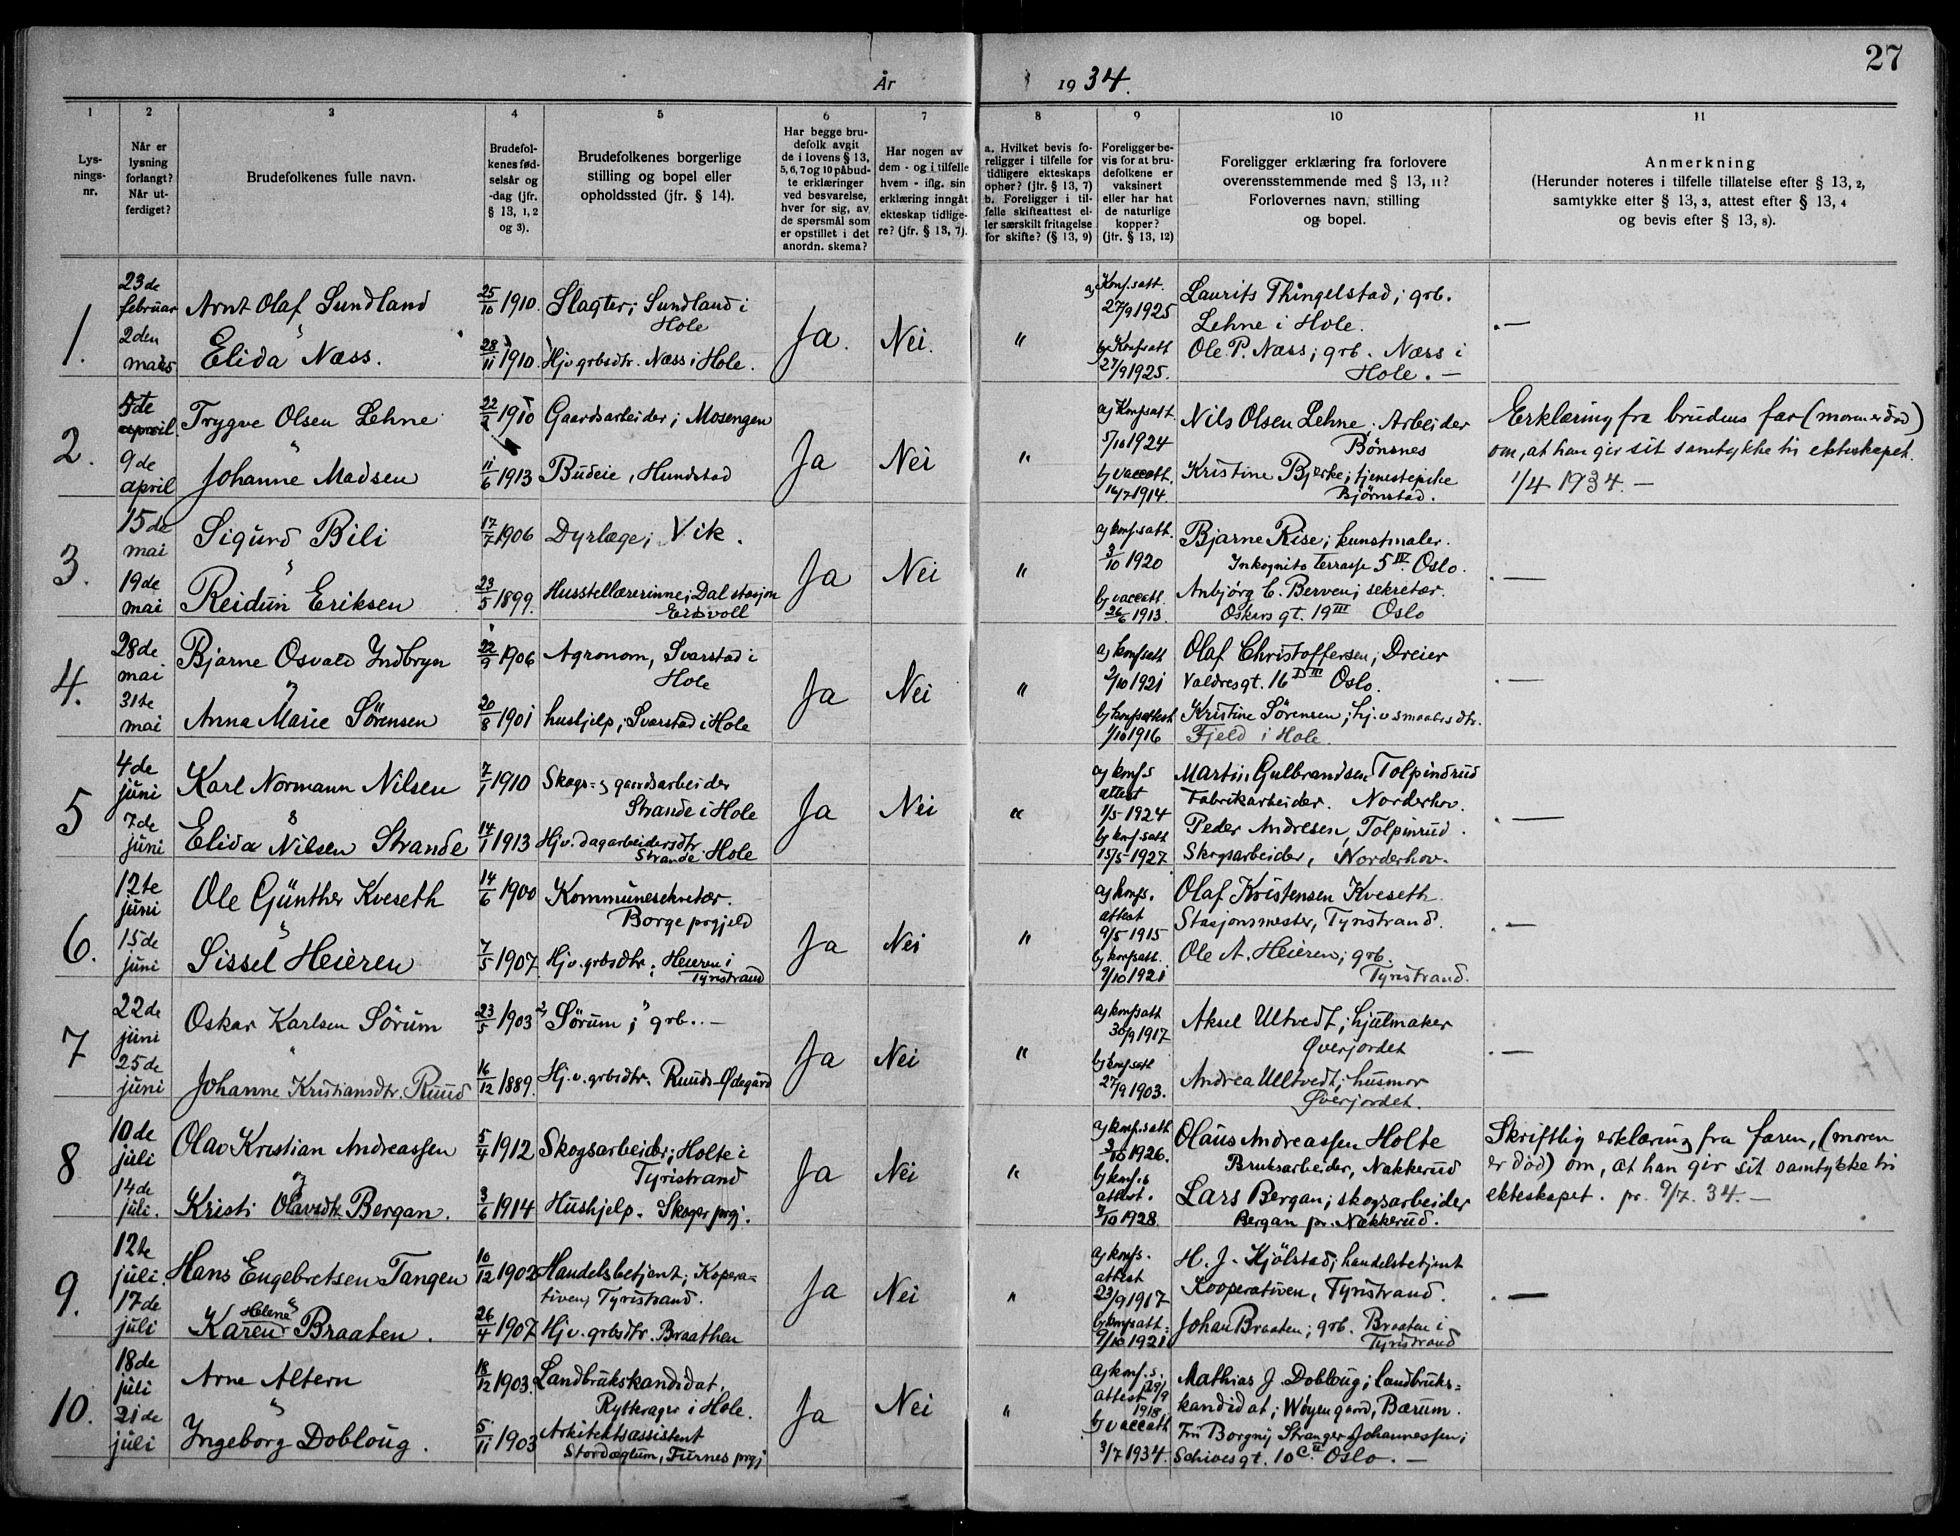 27
År 1934.
1 2 3 4 5 6 7 8 9 10 11
Lysningsnr.
Når er lysning forlangt? Når utferdiget?
Brudefolkenes fulle navn.
Brudefolkenes fødselsår og -dag (jfr. § 13, 1, 2 og 3).
Brudefolkenes borgerlige stilling og bopel eller opholdssted (jfr. § 14).
Har begge brudefolk avgit de i lovens § 13, 5, 6, 7 og 10 påbudte erklæringer ved besvarelse, hver for sig, av de spørsmål som er opstillet i det anordn. skema?
Har nogen av dem - og i tilfelle hvem - iflg. sin erklæring inngåt ekteskap tidligere? (jfr. § 13, 7).
a. Hvilket bevis foreligger i tilfelle for tidligere ekteskaps ophør? (jfr. § 13, 7) b. Foreligger i tilfelle skifteattest eller særskilt fritagelse for skifte? (§ 13, 9)
Foreligger bevis for at brudefolkene er vaksinert eller har hat de naturlige kopper? (jfr. § 13, 12)
Foreligger erklæring fra forlovere overensstemmende med § 13, 11? Forlovernes navn, stilling og bopel.
Anmerkning
(Herunder noteres i tilfelle tillatelse efter § 13, 2, samtykke efter § 13, 3, attest efter § 13, 4 og bevis efter § 13, 8).
1. 23de februar Arnt Olaf Sundland 25/10 1910. Slagter; Sundland i Hole Ja. Nei. " a) Konf.att. 27/9 1925 Laurits Thingelstad; grb. Lehne i Hole. —
2den mars Elida Næss. 28/11 1910 Hjv. grbsdtr. Næss i Hole. b) Konf.att 27/9 1925. Ole P. Næss; grb. Næss i Hole. —
2. 5te april Trygve Olsen Lehne 22/2 1910 Gaardsarbeider; Mosengen Ja Nei " a) Konf.att 5/10 1924 Nils Olsen Lehne; Arbeider Bönsnes
Erklæring fra brudens far (moren er död) om, at han gir sit samtykke til ekteskapet. 1/4 1934. —
9de april Johanne Madsen 11/6 1913 Budeie, Hundstad b) vaccatt. 16/7 1914. Kristine Bjerke; tjenestepike Bjørnstad.
3. 15de mai Sigurd Bili 17/7 1906 Dyrlæge; Vik. Ja Nei " a) konf.att. 3/10 1920 Bjarne Rise; kunstmaler. Inkognito terrasse 5 IV Oslo. —
19de mai Reidun Eriksen 23/5 1899. Husstellærerinne; Dal stasjon Eidsvoll b) vaccatt. 26/6 1913. Anbjørg C. Berven; sekretær. Oskars gt. 19 III Oslo
4. 28de mai Bjarne Osvald Indbryn 22/9 1906 Agronom, Svarstad i Hole Ja Nei " a) konf.att 2/10 1921 Olaf Christoffersen; Dreier Valdresgt. 16 D III Oslo. —
31te mai Anna Marie Sørensen 20/8 1901 hushjelp; Svarstad i Hole b) konf.attest 1/10 1916 Kristine Sørensen; hj.v. smaabr.dtr. Fjeld i Hole.
5 4de juni Karl Normann Nilsen 7/1 1910 Skogs- & gaardsarbeider Strande i Hole Ja Nei " a) konf.s attest 1/5 1924 Martin Gulbrandsen Tolpinrud Fabrikarbeider. Norderhov. —
7de juni Elida Nilsen Strande 14/1 1913 Hjv. dagarbeidersdtr. Strande Hole b) konf.att 15/5 1927. Peder Andresen, Tolpinrud. Skogsarbeider, Norderhov.
6. 12te juni Ole Günther Kveseth 14/6 1900 Kommunesekretær. Borge prgjeld Ja Nei " a) konfs. attest 9/5 1915 Olaf Kristensen Kveseth Stasjonsmester, Tyristrand. —
15de juni Sissel Heieren 7/5 1907. Hjv. grbsdtr; Heieren i Tyristrand b) konf.att. 9/10 1921 Ole A. Heieren; grb. Tyristrand.
7 22de juni Oskar Karlsen Sørum 23/5 1903 Sörum; grb. — Ja Nei " a) konf.att 30/9 1917. Aksel Ultvedt; hjulmaker Øverjordet —
25de juni Johanne Kristiansdtr. Ruud 16/12 1889. Hj.v. grbsdtr. Ruuds-Ødegård b) konf.att 27/9 1903. Andrea Ultvedt; husmor Øverjordet.
8 10de juli Olav Kristian Andreassen 5/4 1912 Skogsarbeider; Holte i Tyristrand Ja Nei " a) konf.att 3/10 1926. Olaus Andreassen Holte Bruksarbeider, Nakkerud
Skriftlig erklæring fra faren, (moren er död) om, at han gir sit samtykke til ekteskapet. pr. 9/7. 34. —
14de juli. Kristi Olavsdtr. Bergan. 3/6 1914 Hushjelp. Skoger prgj. b) konf.s attest. 7/10 1928. Lars Bergan; skogsarbeider Bergan pr. Nakkerud.
9. 12te juli. Hans Engebretsen Tangen 10/12 1902 Handelsbetjent; Koperativen, Tyristrand. Ja Nei " a) konfs. attest 23/9 1917 H. J. Kjölstad; handelsbetjent Kooperativen, Tyristrand. —
17de juli Karen Helene Braaten. 26/4 1907. Hjv. grbsdtr. Braathen b) konf.att. 9/10 1921 Johan Braaten; grb. Braaten i Tyristrand
10. 18de juli Arne Altern 18/12 1903. Landbrukskandidat. Rytterager i Hole. Ja Nei " a) konf.s. attest 29/9 1918. Mathias J. Dobloug; landbrukskandidat; Wøyen gaard, Bærum.
21de juli Ingeborg Dobloug. 5/11 1903 Arkitektassistent Stordæglum, Furnes prgj b) vaccatt 3/7 1934. Frü Borgny Stranger Johannessen; Schivesgt. 10 C. II Oslo. —